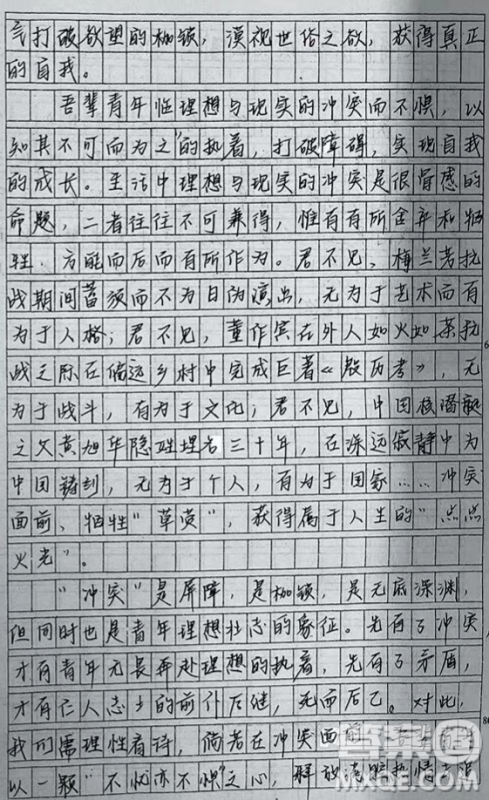 气打破欲望的枷锁，漠视世俗之欲，获得真正
的自我。
吾辈青年临理想与现实的冲突而不惧，以
知其不可而为之”的执着，打破障碍，实现自我
的成长。生活中理想与现实的冲突是很骨感的
命题，二者往往不可兼得，惟有有所舍弃和牺
牲，方能而后而有所作为。君不见，梅兰芳抗
战期间蓄须而不为日伪演出，无为于艺术而有
为于人格；君不见，董作宾在外人如火如荼抗
战之际在偏远乡村中完成巨著《殷历考》，无
为于战斗，有为于文化；君不见，中国核潜艇
之父黄旭华隐姓埋名三十年，在深远寂静中为
中国铸剑，无为于个人，有为于国家……冲突
面前，牺牲“草莫”，获得属于人生的“点点
火光”。
“冲突”是屏障，是枷锁，是无底深渊，
但同时也是青年理想壮志的象征。先有了冲突
才有青年无畏再处理想的执着，先有了矛盾，
才有仁人志士的前仆后继，死而后已。对此，
我们需理性看待，倘若在冲突面前
以一颗“不忧亦不惧”之心，释放